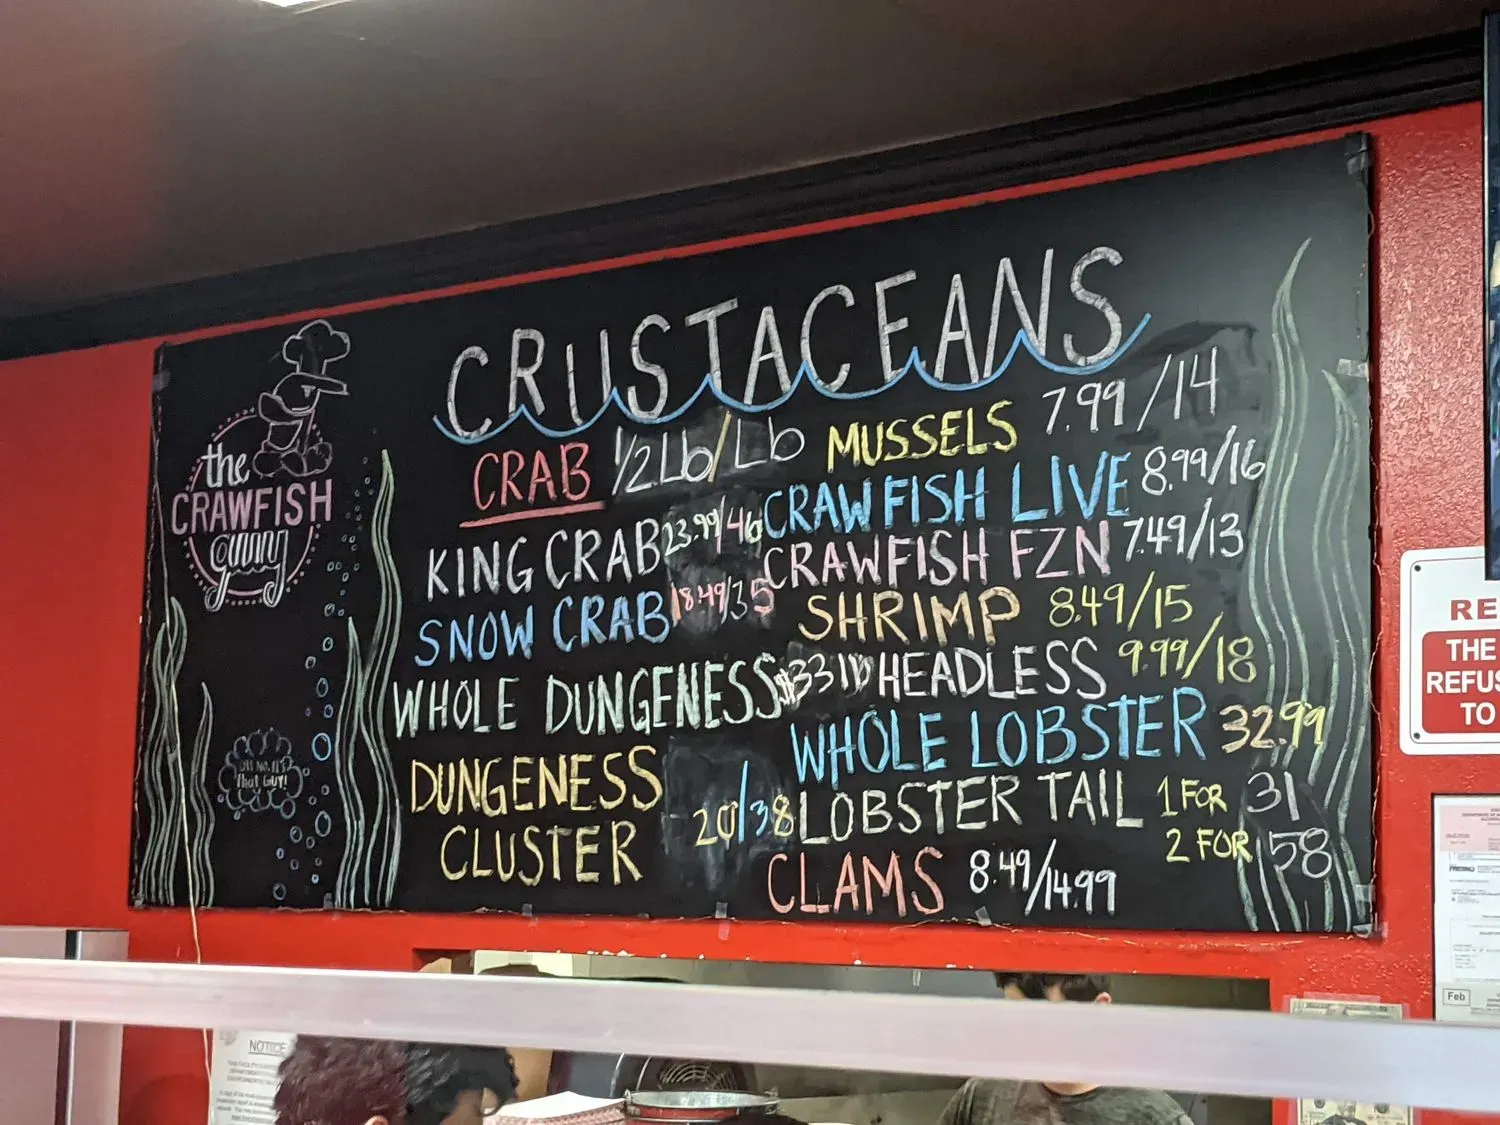 CRUSTACEANS
the
CRAWFISH
OH NO, IT'S
that GUY!
CRAB 1/2Lb/Lb
KING CRAB 23.99/46
SNOW CRAB 18.49/35
WHOLE DUNGENESS $33 lb
DUNGENESS
CLUSTER 20/38
MUSSELS 7.99/14
CRAWFISH LIVE 8.99/16
CRAWFISH FZN 7.49/13
SHRIMP 8.49/15
HEADLESS 9.99/18
WHOLE LOBSTER 32.99
LOBSTER TAIL 1 FOR 31
2 FOR 58
CLAMS 8.49/14.99
RE
THE
REFUS
TO
Feb
NOTICE